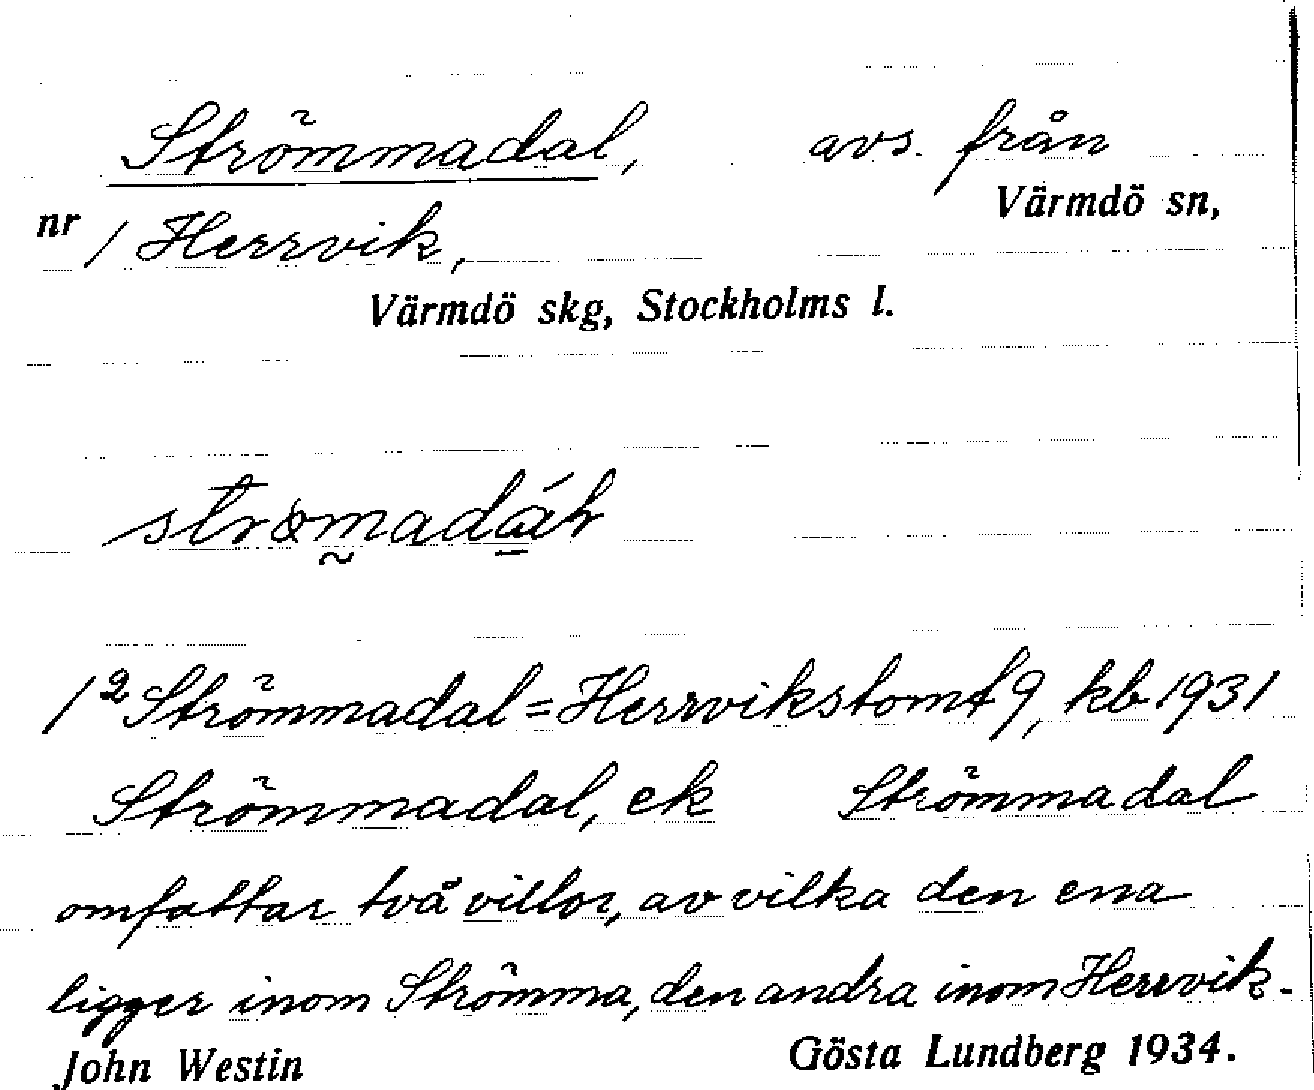 Strömmadal, avs. från
Värmdö sn,
nr 1 Herrvik,
Värmdö skg, Stockholms l.
1² Strömmadal = Herrvikstomt 9, kb 1931
Strömmadal, ek Strömmadal
omfattar två villor, av vilka den ena
ligger inom Strömma, den andra inom Herrvik.
John Westin Gösta Lundberg 1934.